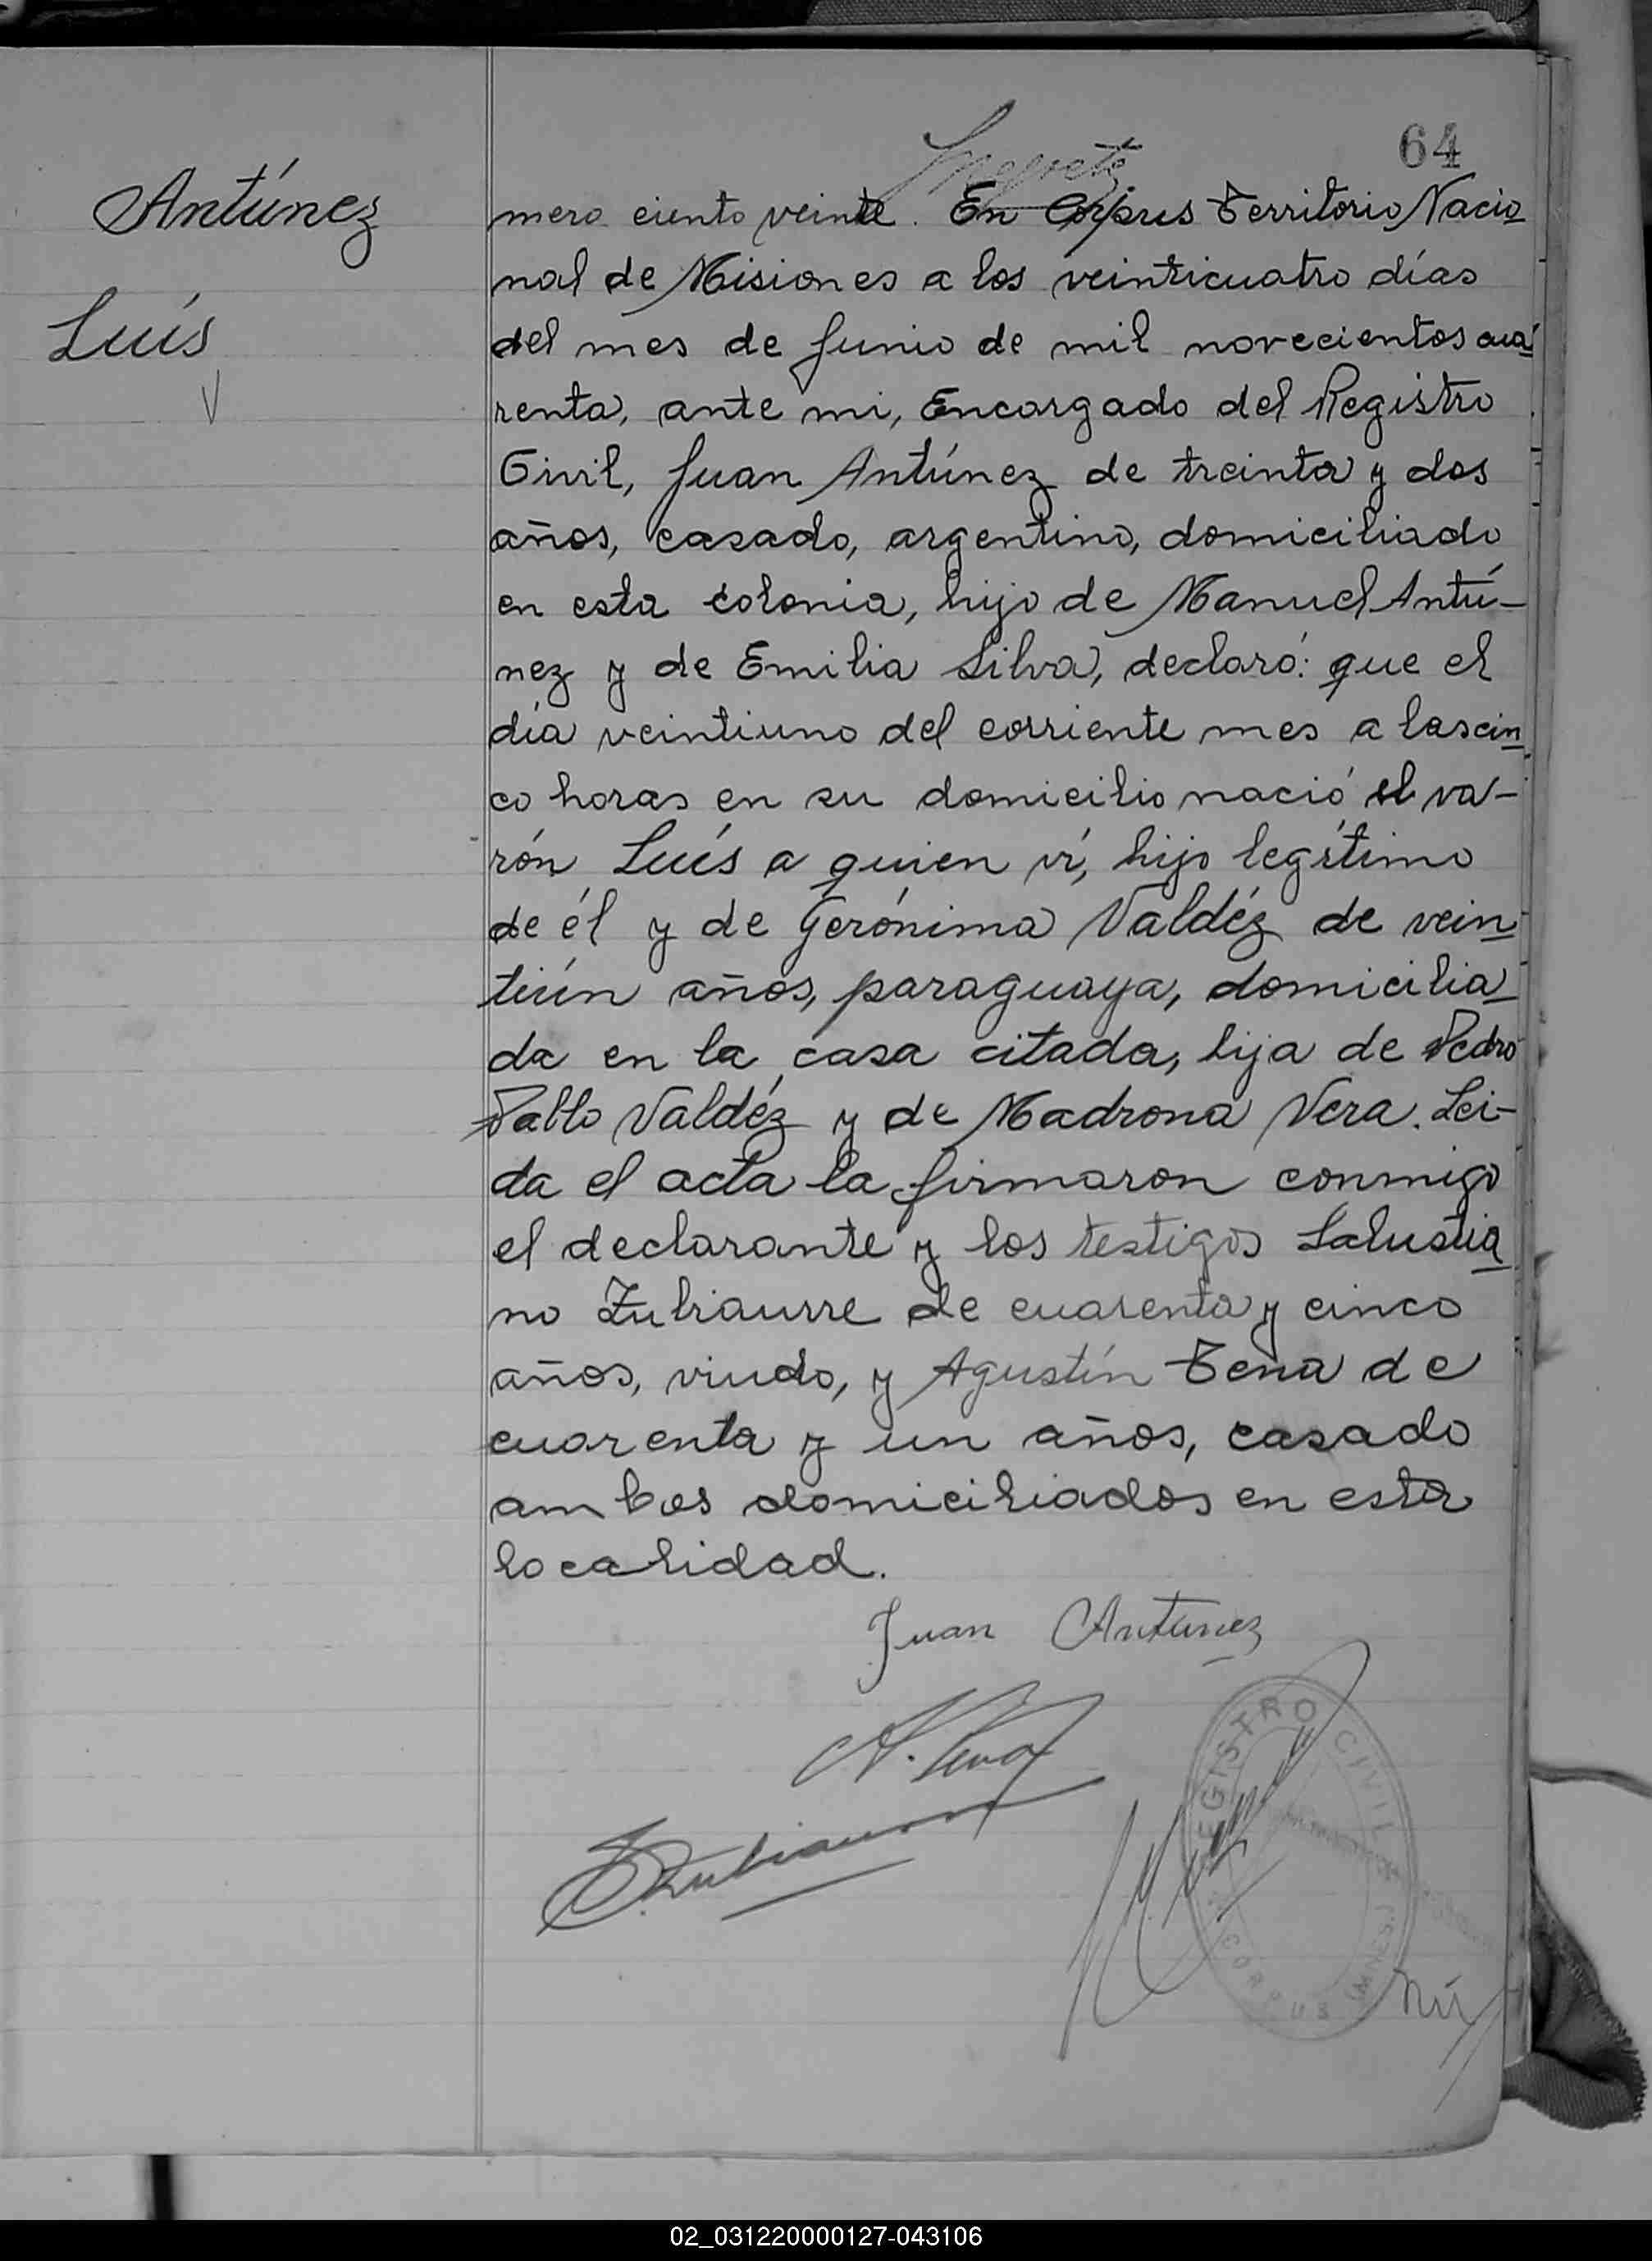 64
Antúnez
Luís
mero ciento veinte. En Corpus Territorio Nacio
nal de Misiones a los veinticuatro días
del mes de Junio de mil novecientos cua
renta, ante mi, Encargado del Registro
Civil, Juan Antúnez de treinta y dos
años, casado, argentino, domiciliado
en esta colonia, hijo de Manuel Antú-
nez y de Emilia Silva, declaró: que el
día veintiuno del corriente mes a las cin
co horas en su domicilio nació el va-
rón Luís a quien ví, hijo legítimo
de él y de Gerónima Valdéz de vein
tiún años, paraguaya, domicilia
da en la casa citada, hija de Pedro
Pablo Valdéz y de Madrona Vera. Lei-
da el acta la firmaron conmigo
el declarante y los testigos Salustia
no Zubiaurre de cuarenta y cinco
años, viudo, y Agustín Tena de
cuarenta y un años, casado
ambos domiciliados en esta
localidad.
Juan Antunez
A. Tena
REGISTRO CIVIL
S. Zubiaurre
CORPUS (MNES.)
Nú
02_031220000127-043106